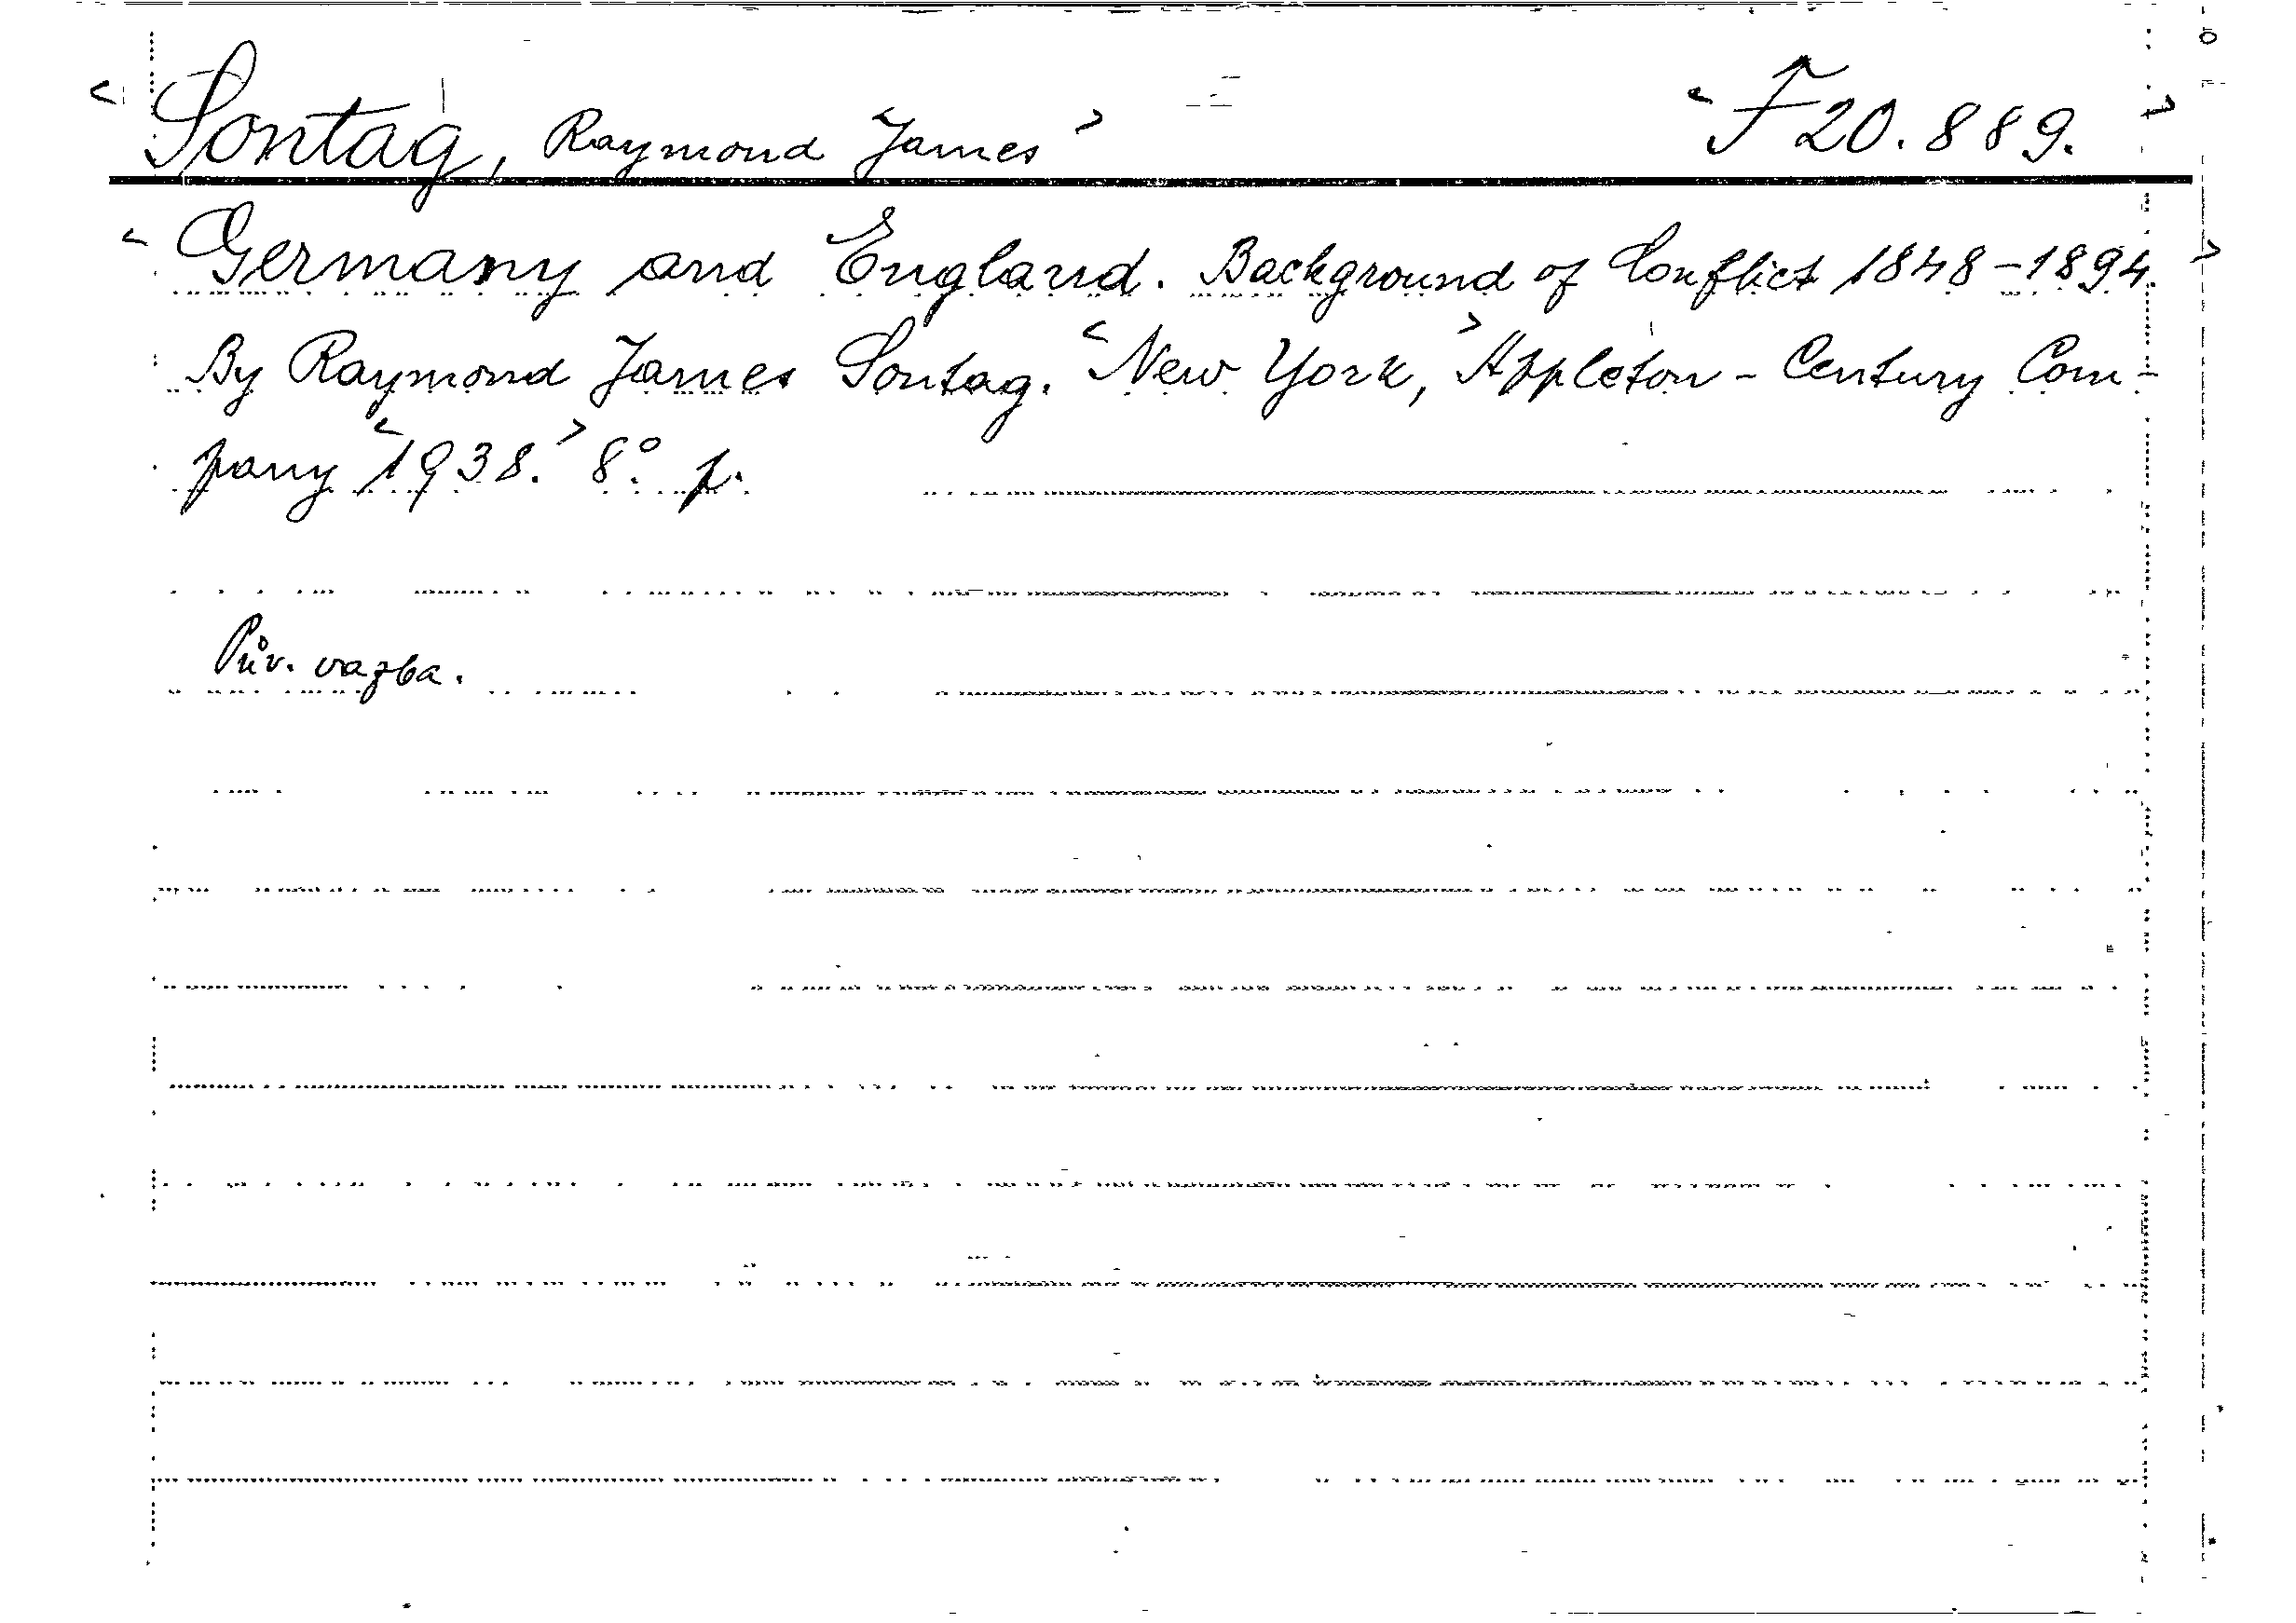 <Sontag, Raymond James> <F 20.889.>
<Germany and England. Background of Conflict 1848-1894.>
By Raymond James Sontag. <New York,> Appleton-Century Com-
pany <1938.> 8° p.
Pův. vazba.